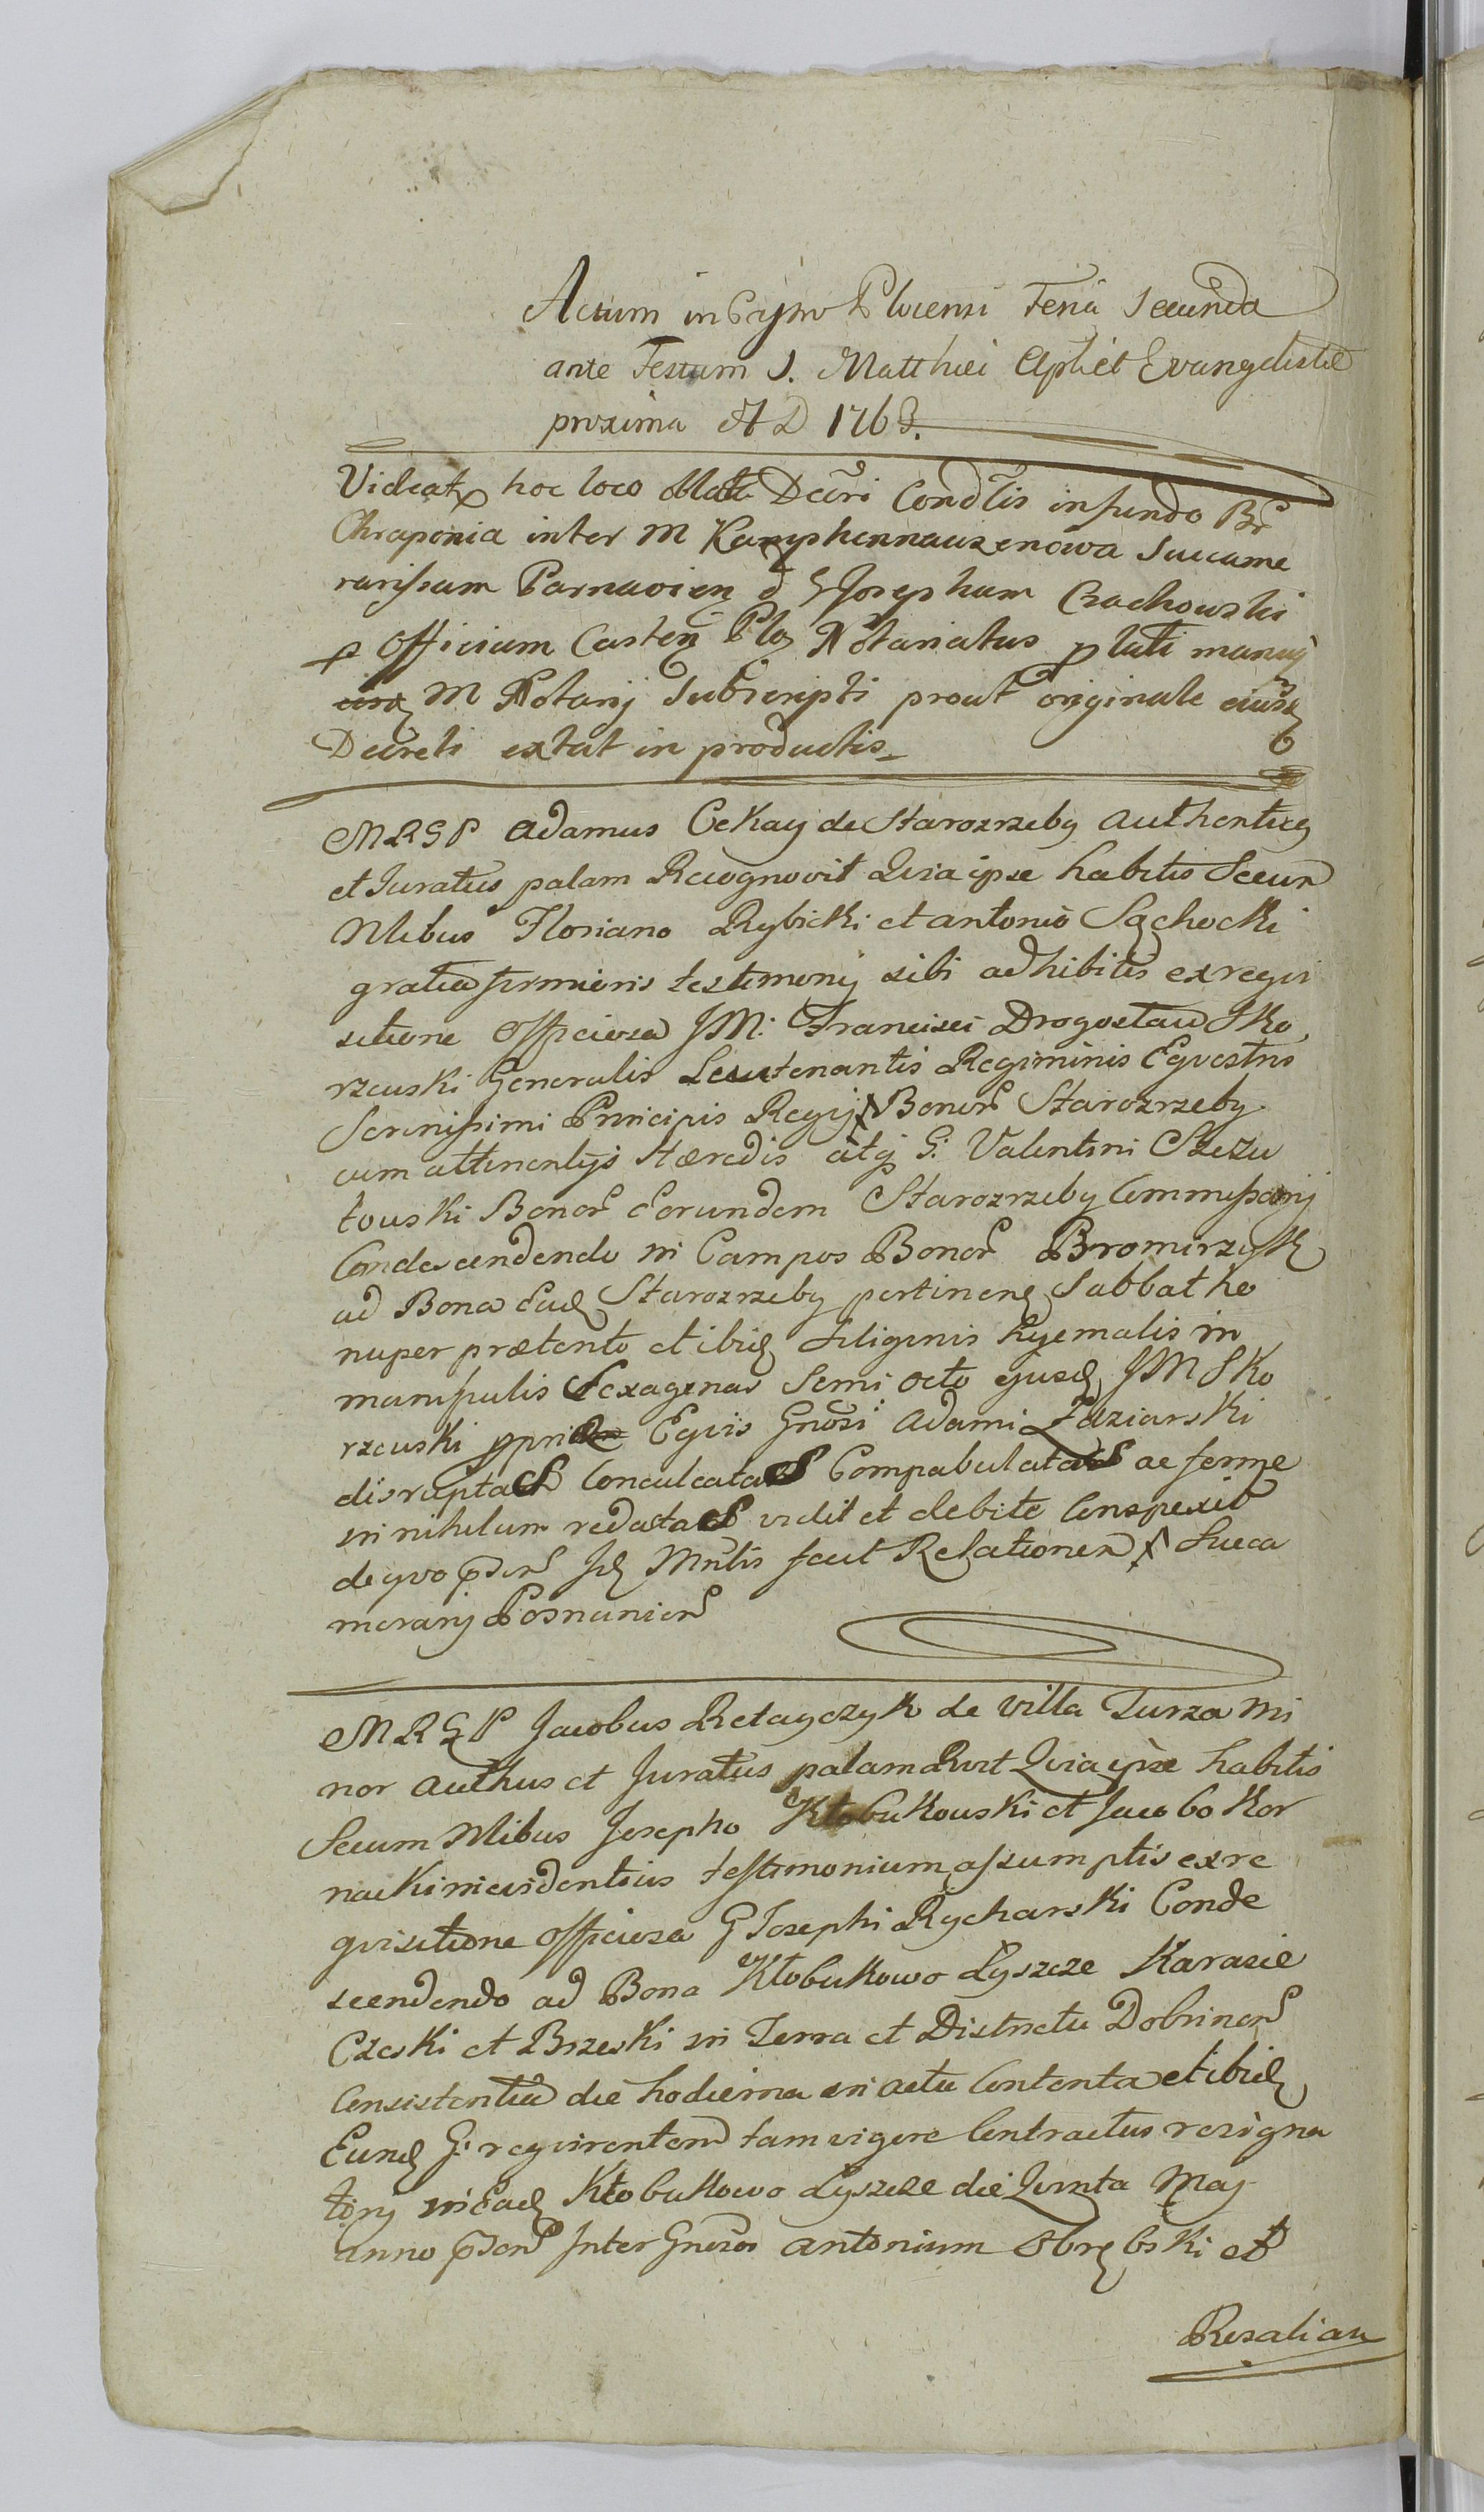 Actum in Cstro Plocensi Feria Secunda
ante Festum S. Matthæi Apli et Evangelistæ
proxima A D 1763.
Videatr hoc loco Oblatta Decri Condtis in fundo Br
Chraponia inter M Kamphennauzenowa Succame
rarissam Parnavien & G Josephum Crachowski
p Officium Casten Plo Notariatus p lati manuq
M Notarij Subscripti prout originale eiusd
Decreti extat in productis
MRGP Adamus Cekay de Starozrzeby Authenticq
et Juratus palam Recognovit Quia ipse habitis Secum
Nlibus Floriano Rybicki et Antonio Sączhocki
gratia firmioris testimonij sibi adhibitis ex reqvi
sitione Officiosa JM: Francisci Drogostaw Sko
rzewski Generalis Leutenantis Regiminis Eqvestris
Serenissimi Principis Regij X Bonor Starozrzeby
cum attinentijs Hæredis atq G: Valentini Szczu
towski Bonor Eorundem Starozrzeby Commissarij
Condescendendo in Campos Bonor Bromirzyk
ad Bona Ead Starozrzeby pertinen Sabbatho
nuper prætento et ibid Siliginis hyemalis in
manipulis Sexagenas Semi octo ejusd JM Sko
rzewski pprias Eqvis Gnosi Adami Zdziarski
disruptas Conculcatas Compabulatas ac ferme
in nihilum redactas vidit et debite Conspexit
de qvo pden Jd Mnlis fecit Relationem X Succa
merarij Posnanien
MRGP Jacobus Retayczyk de Villa Turza Mi
nor Authus et Juratus palam Rvit Quia ipse habitis
Secum Nlibus Josepho Kłobukowski et Jacobo Kor
nacki in evidentius testimonium assumptis ex re
qvisitione Officiosa G Josephi Rycharski Conde
scendendo ad Bona Kłobukowo Łyszcze Karasie
Czeski et Brzeski in Terra et Districtu Dobrinen
Consistentia die hodierna in actu Contenta et ibid
Eund G: reqvirentem tam vigore Contractus resigna
torij in Ead Kłobukowo Łyszcze die Qvinta Maj
anno pden Inter Gnosos Antonium Obrębski et
Rosaliam